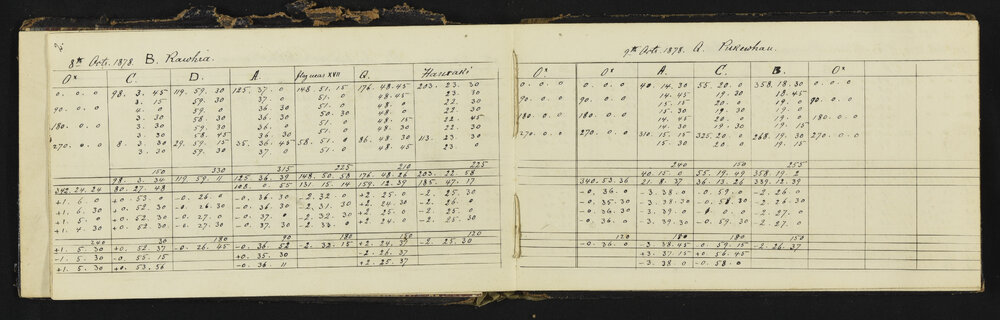 8th Octr. 1878. B. Rawhia.
O× C. D. A. flag near XVII Q. Hauraki
0. 0. 0 98. 3. 45 119. 59. 30 125. 37. 0 148. 51. 15 176. 48. 45 203. 23. 30
3. 15 59. 30 37. 0 51. 0 48. 0 23. 30
90. 0. 0 4. 0 59. 0 36. 30 51. 0 48. 0 22. 30
3. 30 58. 30 36. 30 50. 30 48. 0 22. 30
180. 0. 0 3. 30 59. 30 36. 0 51. 0 48. 15 22. 45
3. 30 58. 45 36. 30 51. 0 48. 30 22. 30
270. 0. 0 8. 3. 30 29. 59. 15 35. 36. 45 58. 51. 0 86. 48. 30 113. 23. 0
3. 30 59. 30 37. 0 51. 0 48. 45 23. 0
150 330 315 225 210 225
98. 3. 34 119. 59. 11 125. 36. 39 148. 50. 58 176. 48. 26 203. 22. 58
342. 24. 24 80. 27. 48 108. 0. 55 131. 15. 14 159. 12. 39 185. 47. 17
+1. 6. 0 +0. 53. 0 -0. 26. 0 -0. 36. 30 -2. 32. 0 +2. 25. 0 -2. 25. 30
+1. 6. 30 +0. 52. 30 -0. 26. 0 -0. 36. 30 -2. 31. 30 +2. 24. 30 -2. 26. 0
+1. 5. 0 +0. 52. 30 -0. 27. 0 -0. 37. 0 -2. 32. 30 +2. 25. 0 -2. 25. 0
+1. 4. 30 +0. 52. 30 -0. 27. 0 -0. 37. 30 -2. 33. +2. 24. 0 -2. 25. 30
240 30 180 90 180 150 120
+1. 5. 30 +0. 52. 37 -0. 26. 45 -0. 36. 52 -2. 32. 15 +2. 24. 37 -2. 25. 30
-1. 5. 30 -0. 55. 15 +0. 35. 30 -2. 26. 37
+1. 5. 30 +0. 53. 56 -0. 36. 11 +2. 25. 37
9th Octr. 1878. Q. Pukewhau.
O× O× A. C. B. O×
0. 0. 0 0. 0. 0 40. 14. 30 55. 20. 0 358. 18. 30 0. 0. 0
14. 45 19. 30 18. 45
90. 0. 0 90. 0. 0 15. 15 20. 0 19. 0 90. 0. 0
15. 30 19. 30 19. 0
180. 0. 0 180. 0. 0 14. 45 20. 0 19. 0 180. 0. 0
14. 30 19. 30 19. 15
270. 0. 0 270. 0. 0 310. 15. 15 325. 20. 0 268. 19. 30 270. 0. 0
15. 30 20. 0 19. 15
240 150 255
40. 15. 0 55. 19. 49 358 19. 2
340. 53. 36 21. 8. 37 36. 13. 26 339. 12. 39
-0. 36. 0 -3. 38. 0 -0. 59. 0 -2. 26. 0
-0. 35. 30 -3. 38. 30 -0. 58. 30 -2. 26. 30
-0. 36. 30 -3. 39. 0 0. 0 -2. 27. 0
-0. 36. 0 -3. 39. 30 -0. 59. 30 -2. 27. 0
120 180 180 150
-0. 36. 0 -3. 38. 45 0. 59. 15 -2. 26. 37
+3. 37. 15 +0. 56. 45
-3. 38. 0 -0. 58. 0